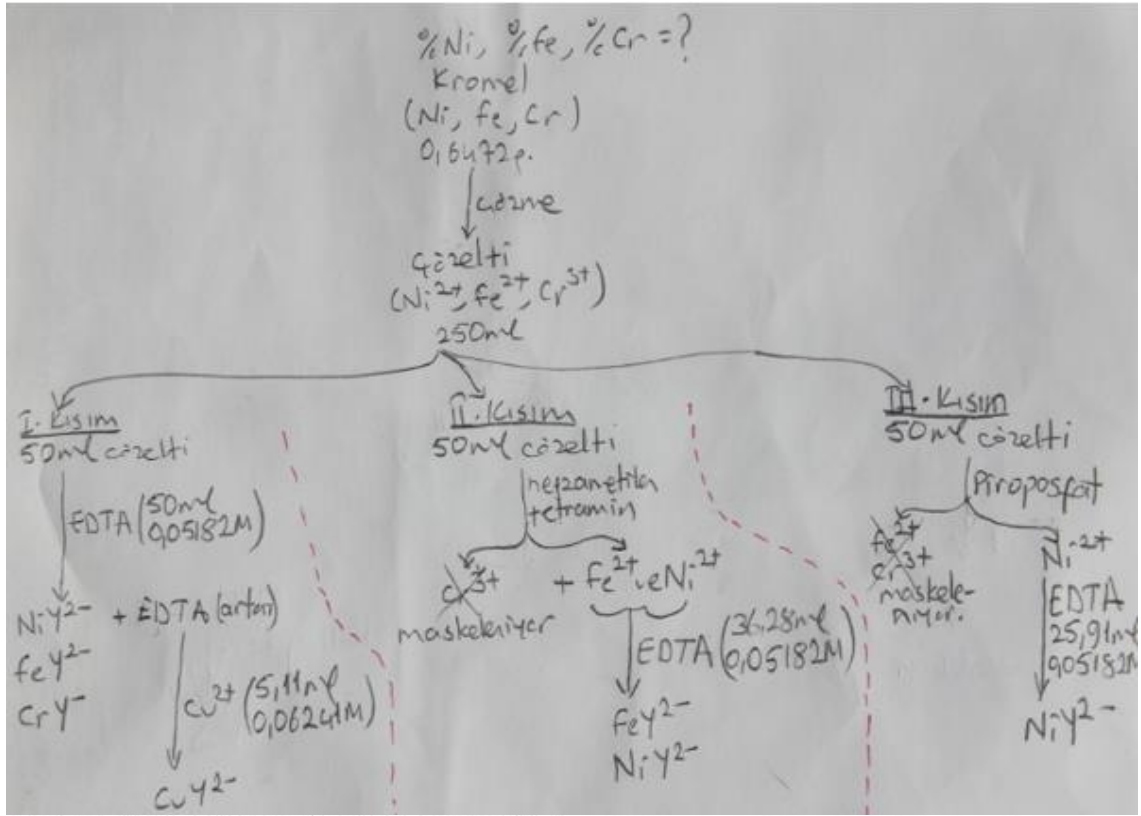 %Ni, %Fe, %Cr =?
Kromel
(Ni, Fe, Cr)
0,6472g.
çözme
Çözelti
(Ni²⁺, Fe²⁺, Cr³⁺)
250ml
I. Kısım
50ml çözelti
EDTA (50ml
0,05182M)
NiY²⁻ + EDTA (artan)
FeY²⁻
CrY⁻
Cu²⁺ (5,11ml
0,06241M)
CuY²⁻
II. Kısım
50ml çözelti
hegzametilen
tetramin
Cr³⁺ + Fe²⁺ ve Ni²⁺
maskeleniyor
EDTA (36,28ml
0,05182M)
FeY²⁻
NiY²⁻
III. Kısım
50ml çözelti
Piroposfat
Fe²⁺
Cr³⁺
maskele-
niyor.
Ni²⁺
EDTA
25,91ml
0,05182M
NiY²⁻